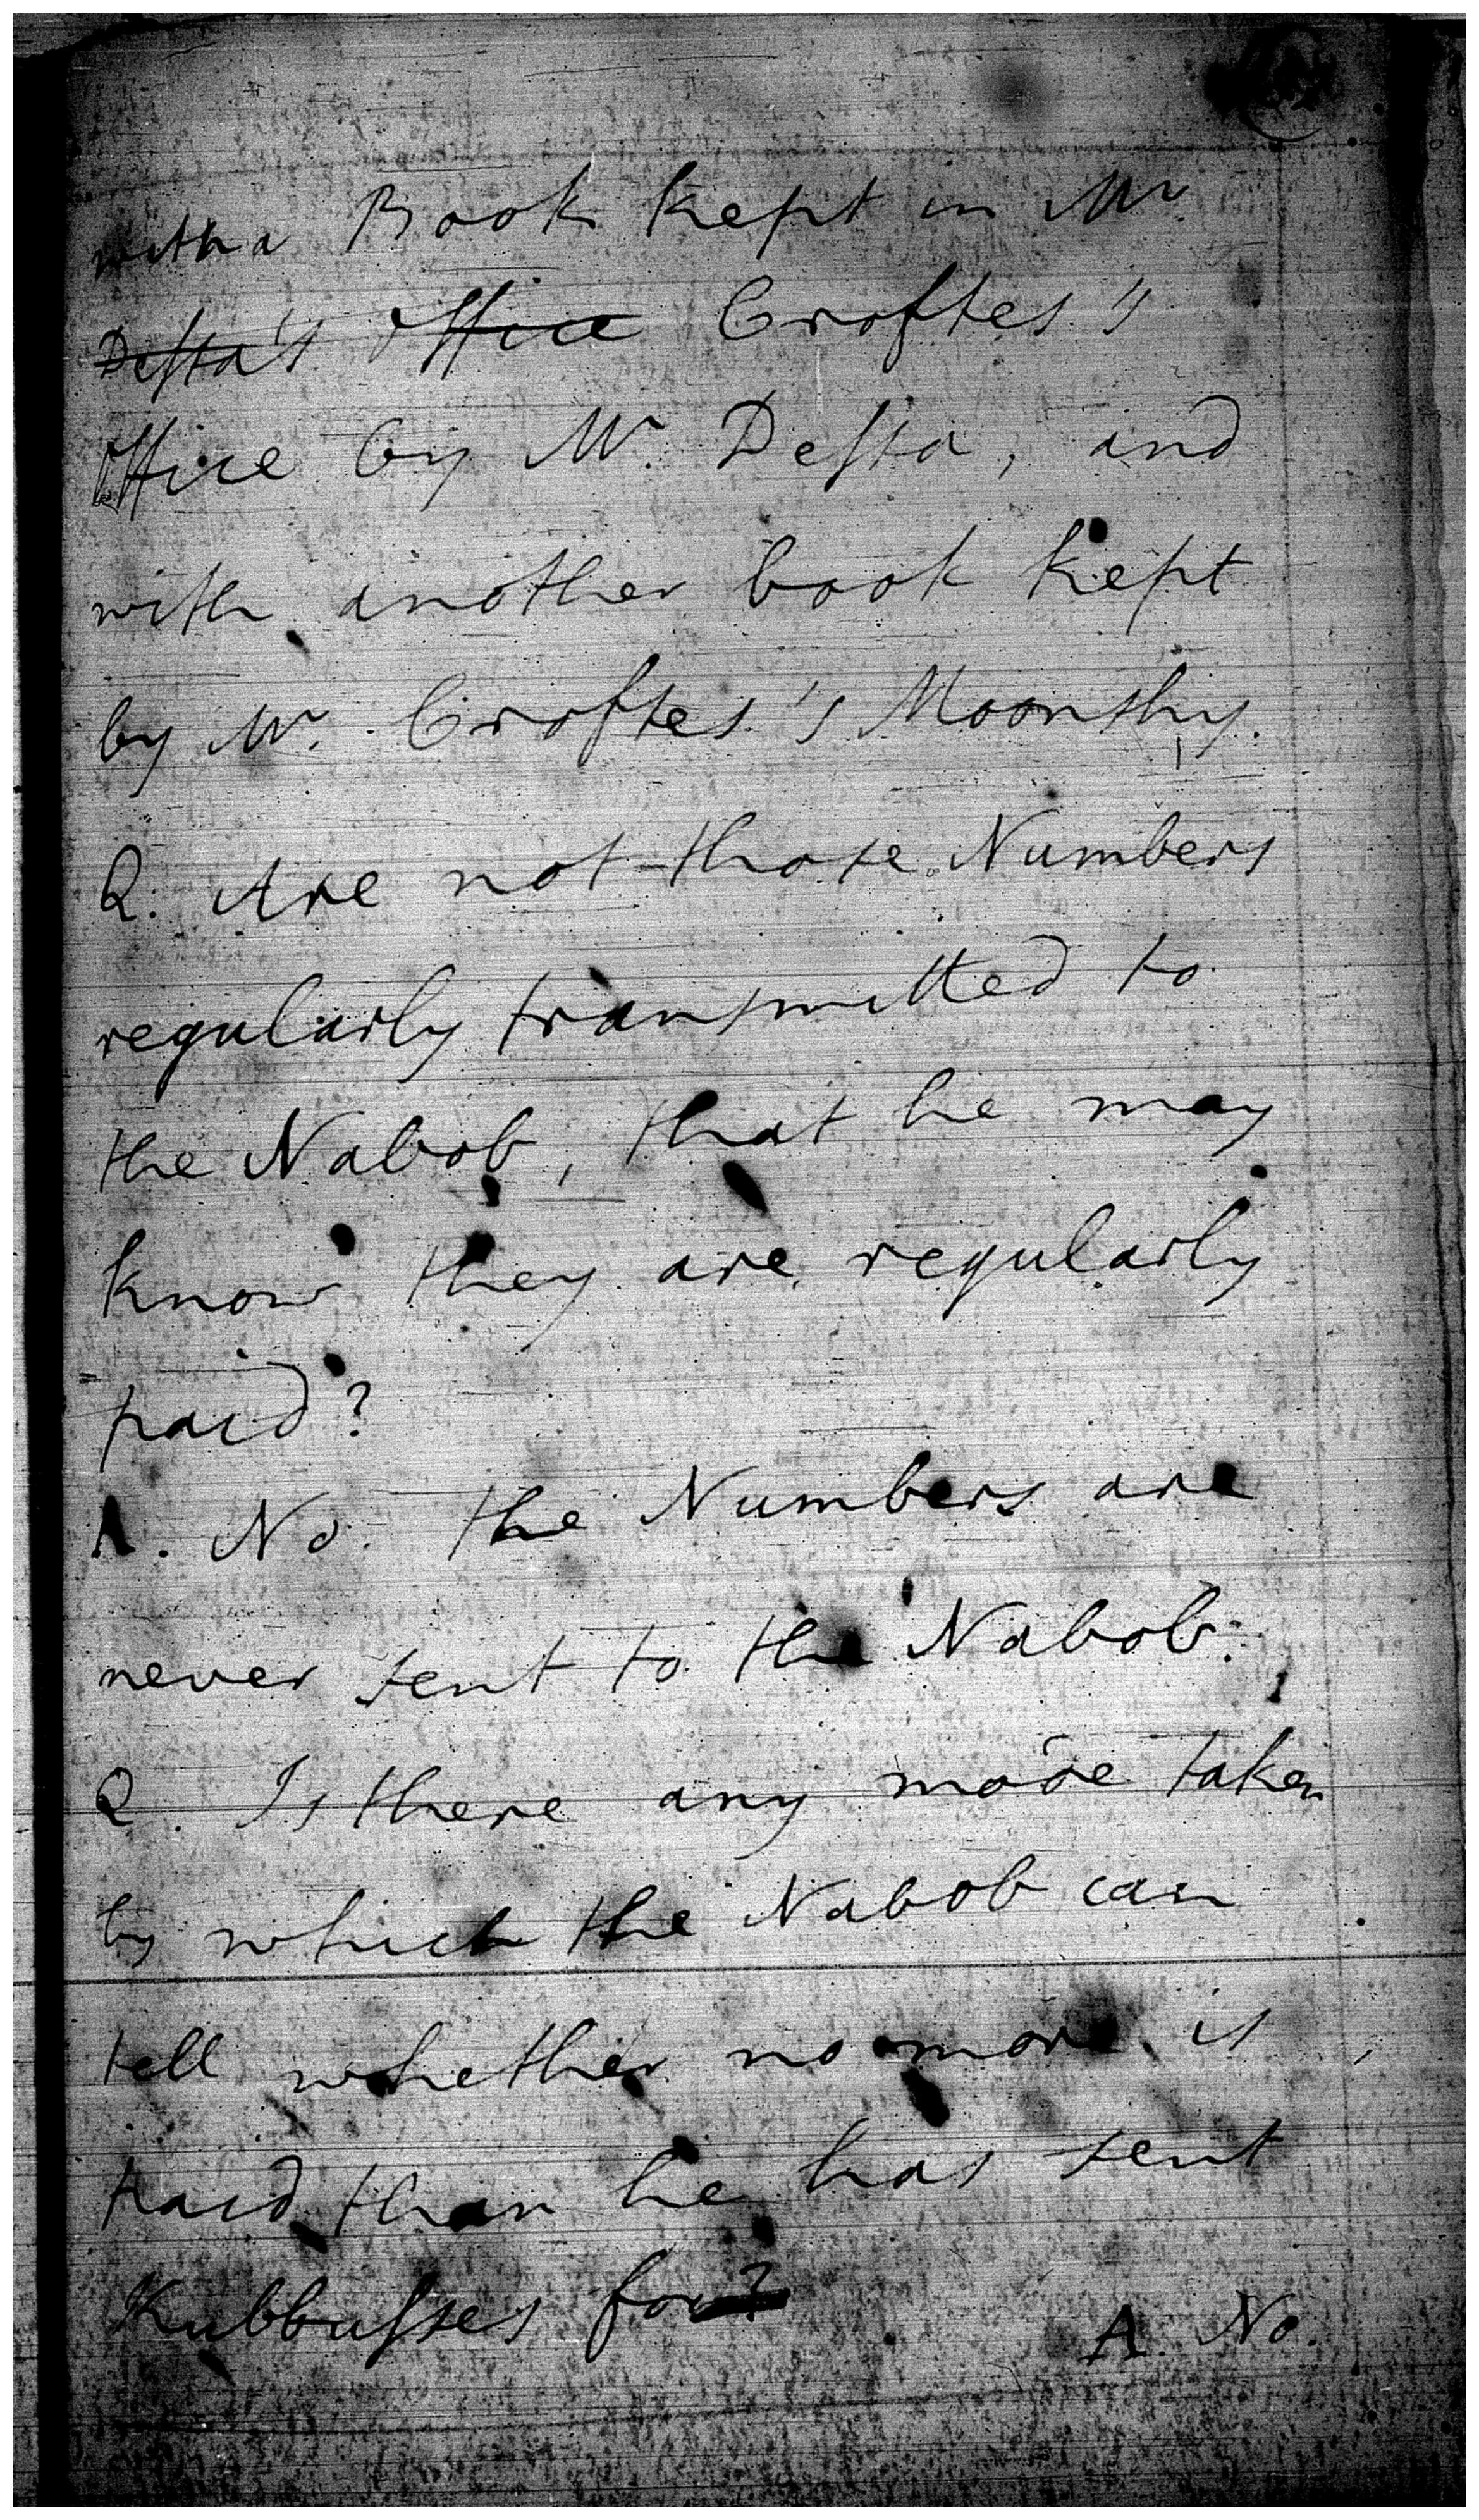 with a Book kept in Mr.
Dessa's Office Croftes's
Office by Mr. Dessa, and
with another book kept
by Mr. Croftes's Moonshy.
Q. Are not those Numbers
regularly transmitted to
the Nabob, that he may
know they are regularly
paid?
A. No. the Numbers are
never sent to the Nabob.
Q. Is there any mode taken
by which the Nabob can
tell whether no more is
paid than he has sent
Kubbusses for?
A. No.